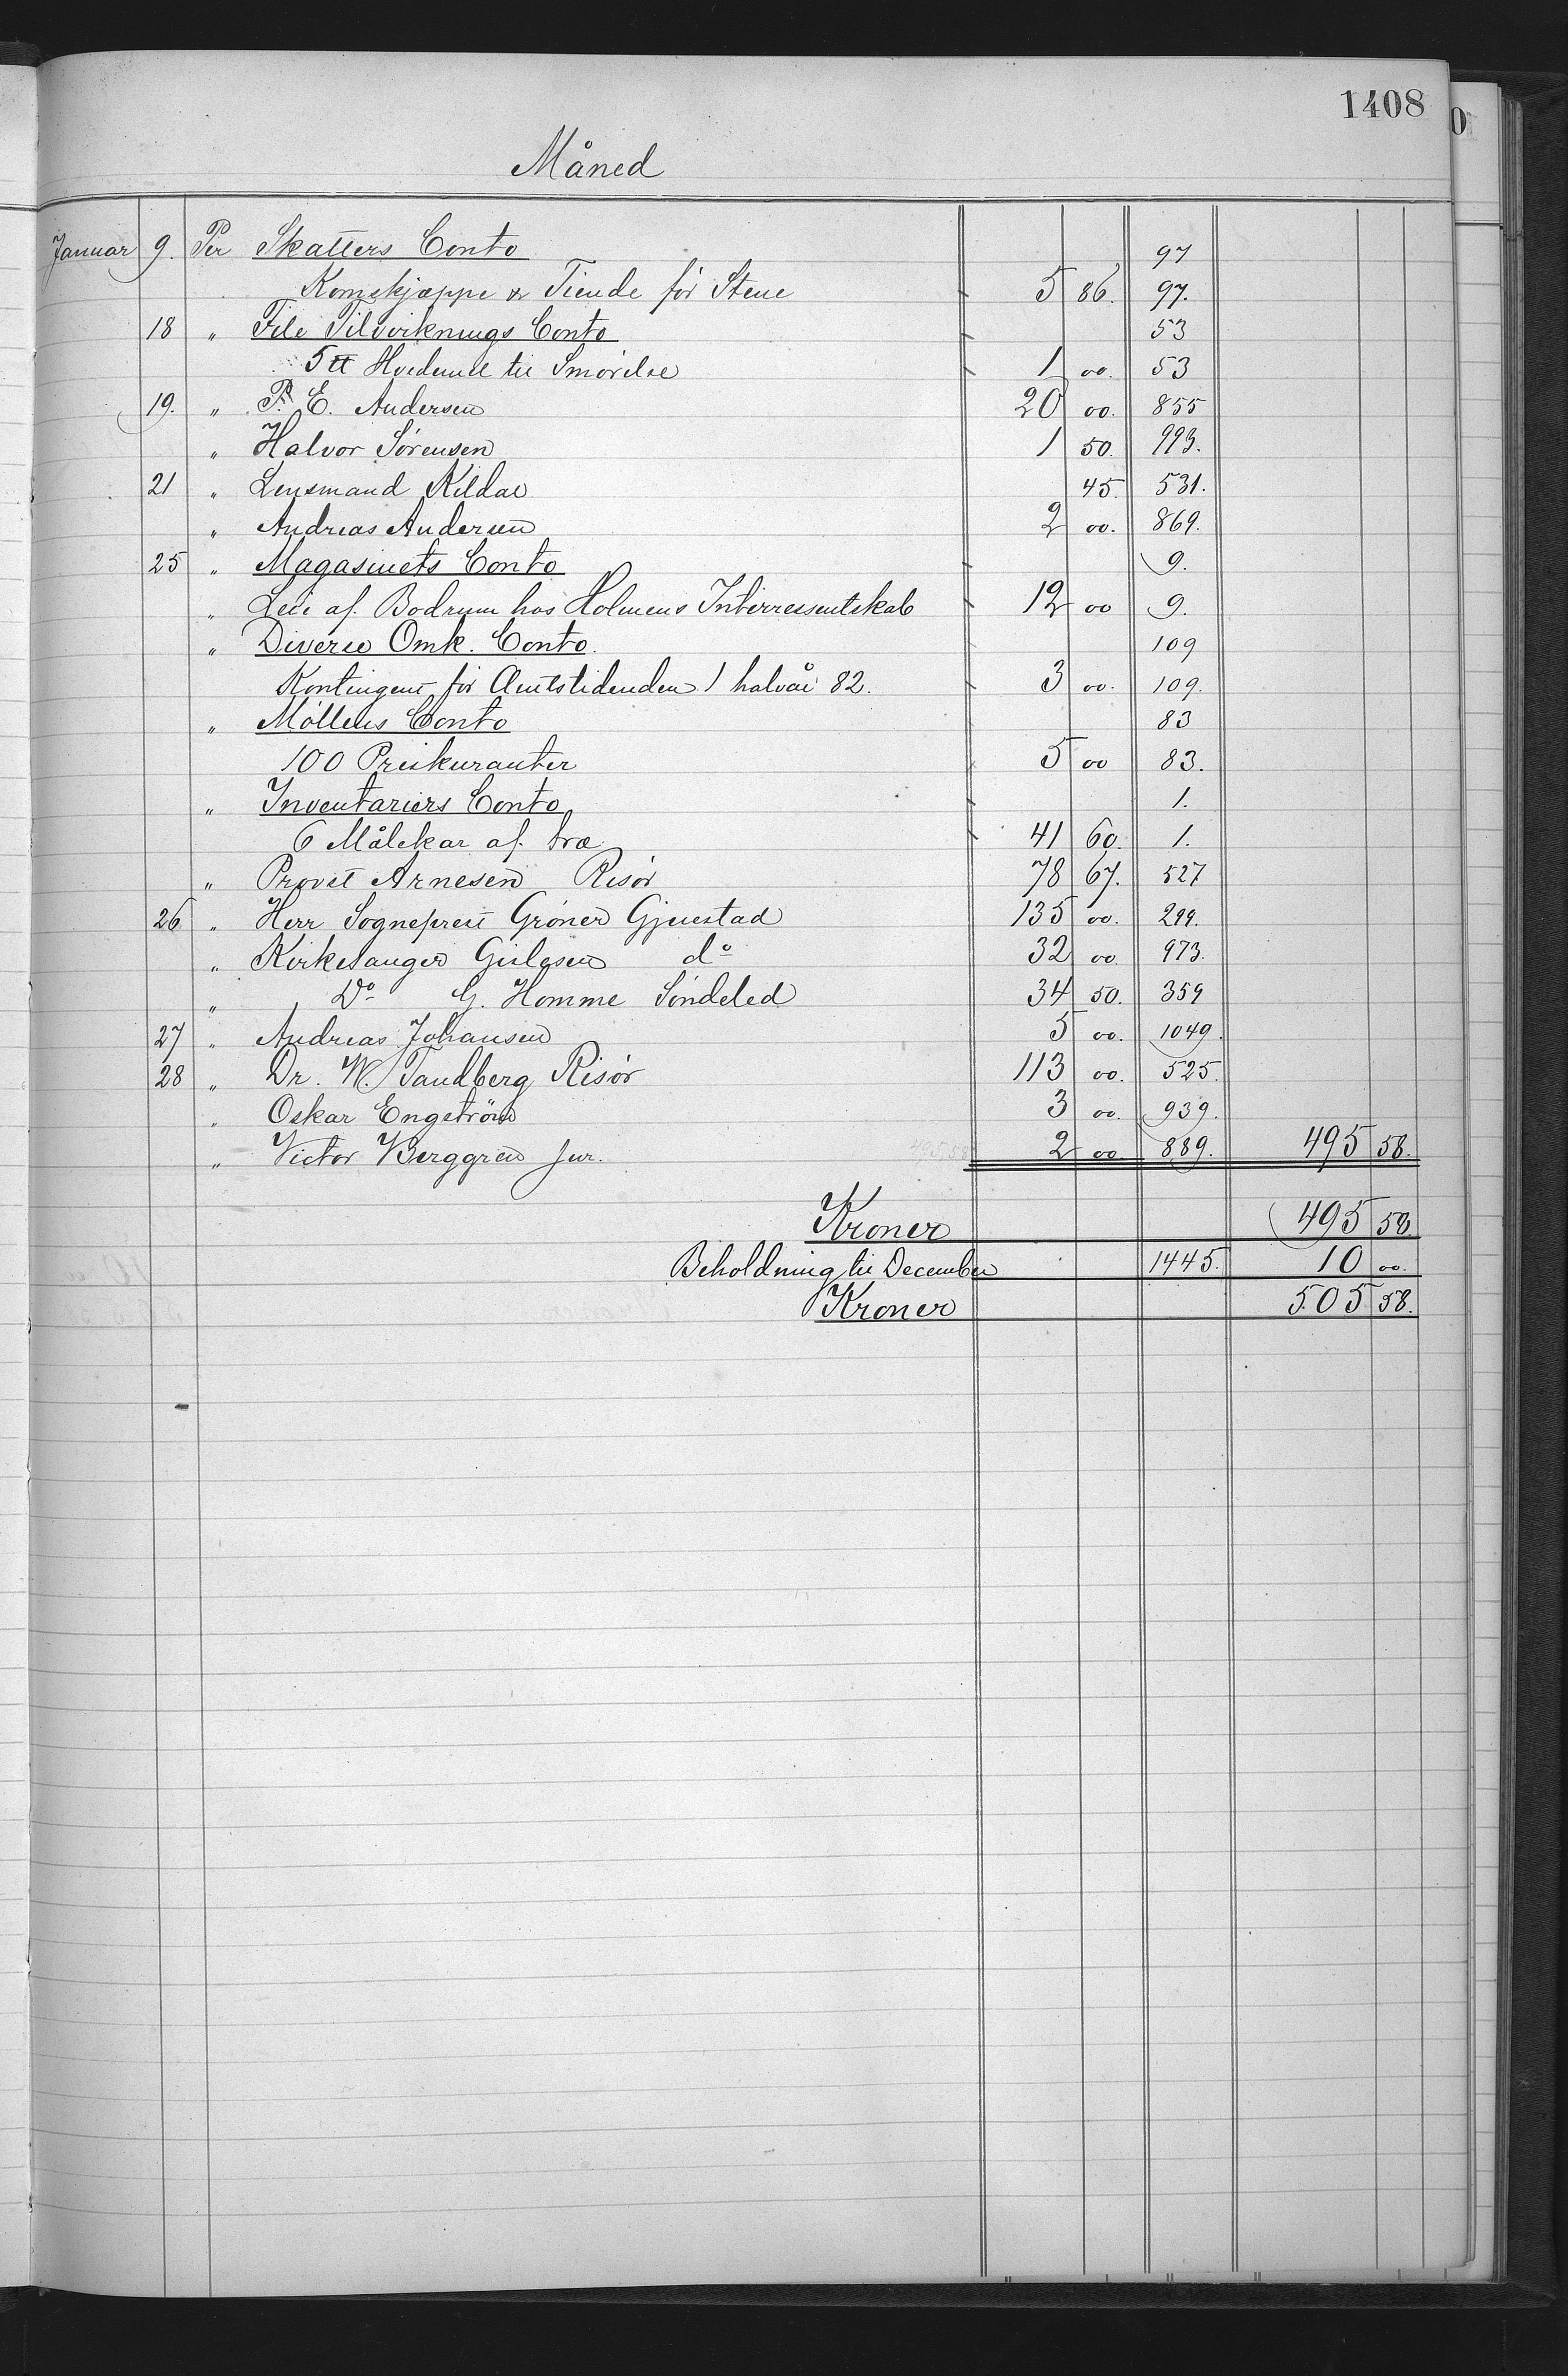 1408
Måned
Januar 9. Per Skatters Conto 97
Kornskjæppe & Tiende for Stene 5 86. 97.
18 " File Tilvirknings Conto 53
5 tt Hvedemel til Smørelse 1 00. 53
19. " P. E. Andersen 20 00. 855
" Halvor Sørensen 1 50. 993.
21 " Lensmand Kildal 45. 531.
" Andreas Andersen 2 00. 869.
25 " Magasinets Conto 9.
" Leie af Bodrum hos Holmens Interressentskab 12 00 9.
" Diverse Omk. Conto. 109
Kontingent for Amtstidenden 1 halvår 82. 3 00. 109.
" Møllens Conto 83
100 Priskuranter 5 00 83.
" Inventariers Conto 1.
6 Målekar af træ 41 60. 1.
" Provst Arnesen Risør 78 67. 527
26 " Herr Sogneprest Grøner Gjerestad 135 00. 299.
" Kirkesanger Gislesen do 32 00. 973.
" Do G. Homme Søndeled 34 50. 359
27 " Andreas Johansen 5 00. 1049.
28 " Dr. W. Tandberg Risør 113 00. 525.
" Oskar Engström 3 00. 939.
" Victor Berggren jur. 495 58 2 00. 889. 495 58.
Kroner 495 58.
Beholdning til December 1445. 10 00.
Kroner 505 58.